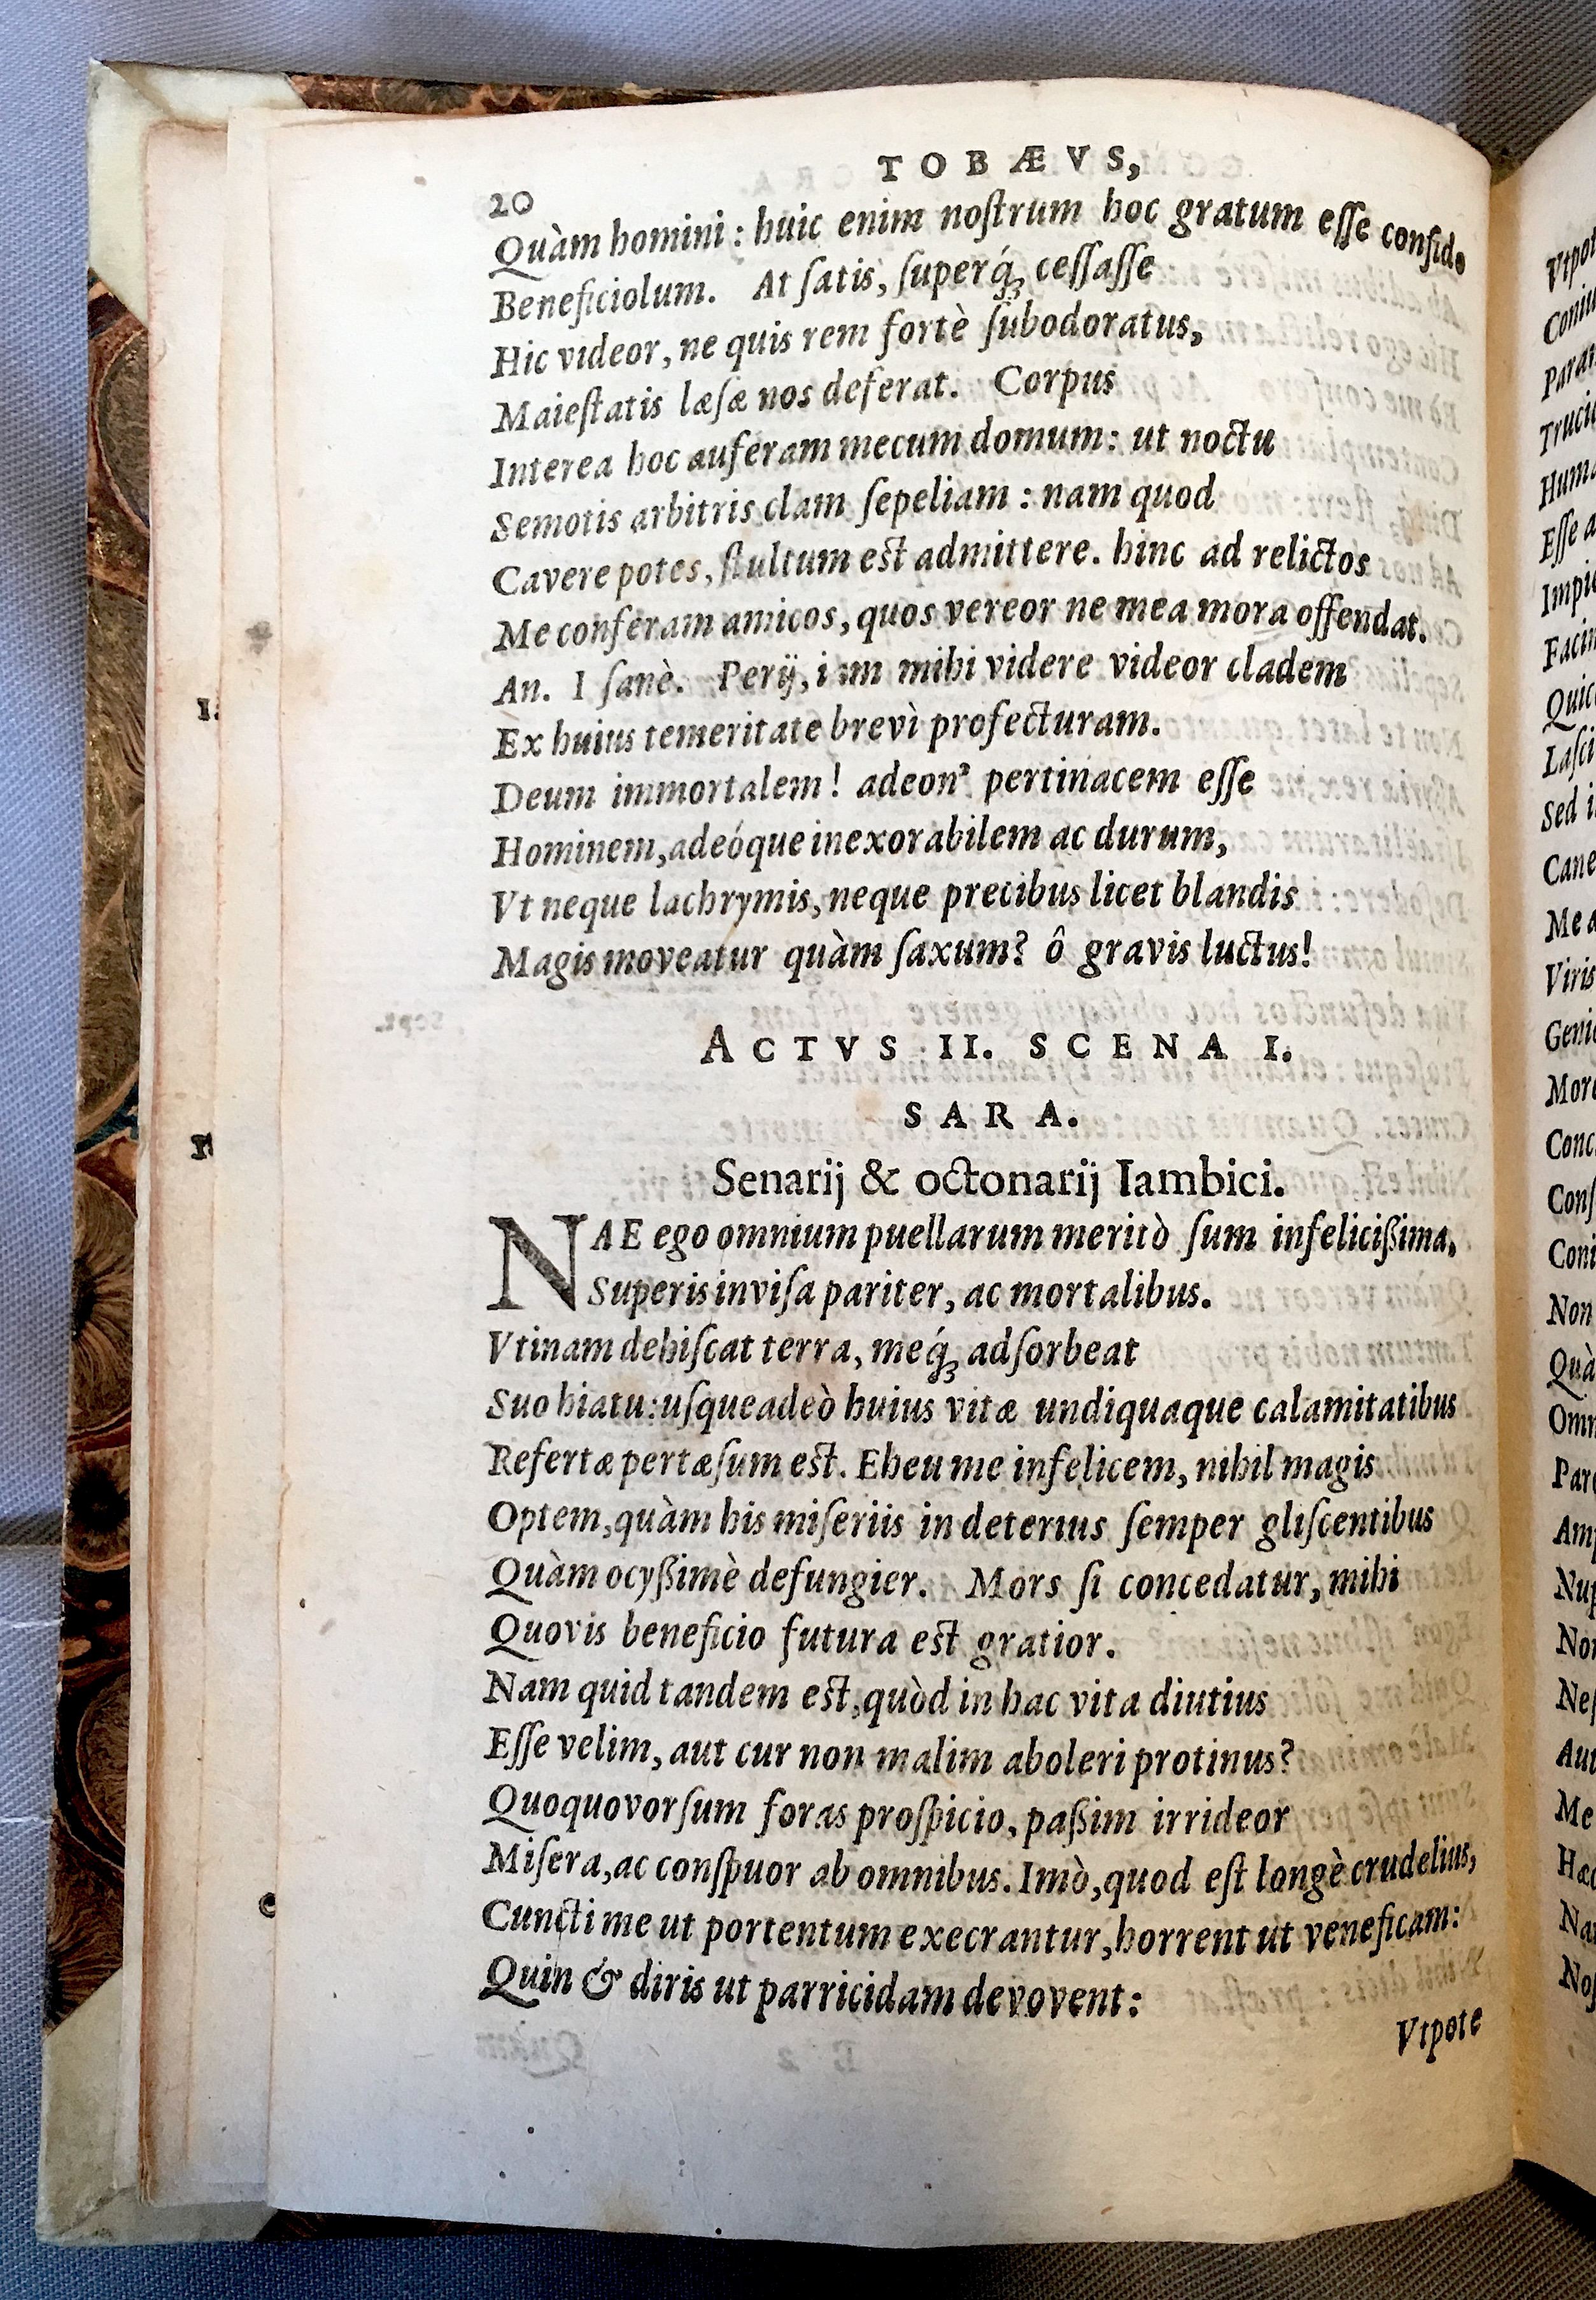 TOBÆVS,
20
Quàm homini: huic enim noſtrum hoc gratum eſſe confid.
Beneficiolum. At ſatis, ſuperq́ꝫ ceſſaſſe
Hic videor, ne quis rem fortè ſubodoratus,
Maieſtatis læſæ nos deferat. Corpus
Interea hoc auferam mecum domum: ut noctu
Semotis arbitris clam ſepeliam: nam quod
Cavere potes, ſtultum est admittere. hinc ad relictos
Me conferam amicos, quos vereor ne mea mora offendat.
An. I ſanè. Perij, iam mihi videre videor cladem
Ex huius temeritate brevì profecturam.
Deum immortalem! adeon' pertinacem eſſe
Hominem, adeóque inexorabilem ac durum,
Vt neque lachrymis, neque precibus licet blandis
Magis moveatur quàm ſaxum? ô gravis luctus!
ACTVS II. SCENA I.
SARA.
Senarij & octonarij Iambici.
NAE ego omnium puellarum meritò ſum infelicißima,
Superis inviſa pariter, ac mortalibus.
Vtinam dehiſcat terra, meq́ꝫ adſorbeat
Suo hiatu: uſqueadeò huius vitæ undiquaque calamitatibus
Refertæ pertæſum est. Eheu me infelicem, nihil magis
Optem, quàm his miſeriis in deterius ſemper gliſcentibus
Quàm ocyßimè defungier. Mors ſi concedatur, mihi
Quovis beneficio futura est gratior.
Nam quid tandem est, quòd in hac vita diutius
Eſſe velim, aut cur non malim aboleri protinus?
Quoquovorſum foras proſpicio, paßim irrideor
Miſera, ac conſpuor ab omnibus. Imò, quod eſt longè crudelius,
Cuncti me ut portentum execrantur, horrent ut veneficam:
Quin & diris ut parricidam devovent:
Vtpote